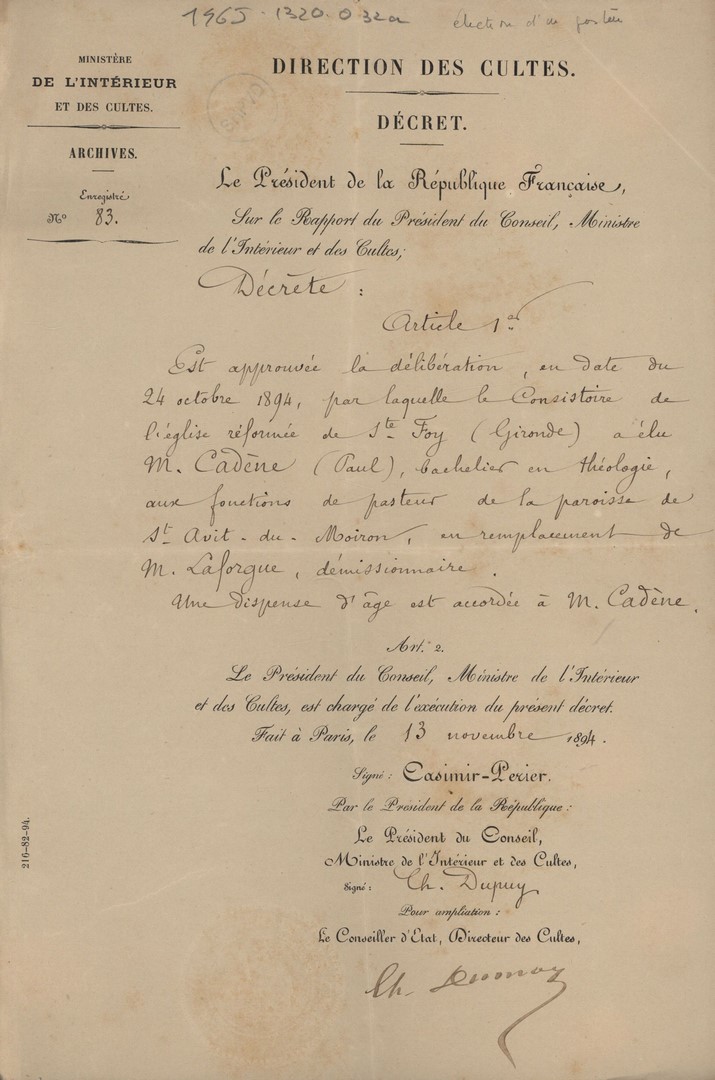 1965-1320.0 32a
élection d'un pasteur
MINISTÈRE
DE L'INTÉRIEUR
ET DES CULTES.
ARCHIVES.
Enregistré
N° 83.
DIRECTION DES CULTES.
DÉCRET.
Le Président de la République Française,
Sur le Rapport du Président du Conseil, Ministre
de l'Intérieur et des Cultes;
Décrète :
Article 1er
Est approuvée la délibération, en date du
24 octobre 1894, par laquelle le Consistoire de
l'église réformée de Ste Foy (Gironde) a élu
M. Cadène (Paul), bachelier en théologie,
aux fonctions de pasteur de la paroisse de
St Avit-du-Moiron, en remplacement de
M. Laforgue, démissionnaire.
Une dispense d'âge est accordée à M. Cadène.
Art. 2.
Le Président du Conseil, Ministre de l'Intérieur
et des Cultes, est chargé de l'exécution du présent décret.
Fait à Paris, le 13 novembre 1894.
Signé : Casimir-Perier.
Par le Président de la République :
Le Président du Conseil,
Ministre de l'Intérieur et des Cultes,
Signé : Ch. Dupuy
Pour ampliation :
Le Conseiller d'État, Directeur des Cultes,
Ch. Dumay
216-82-94.